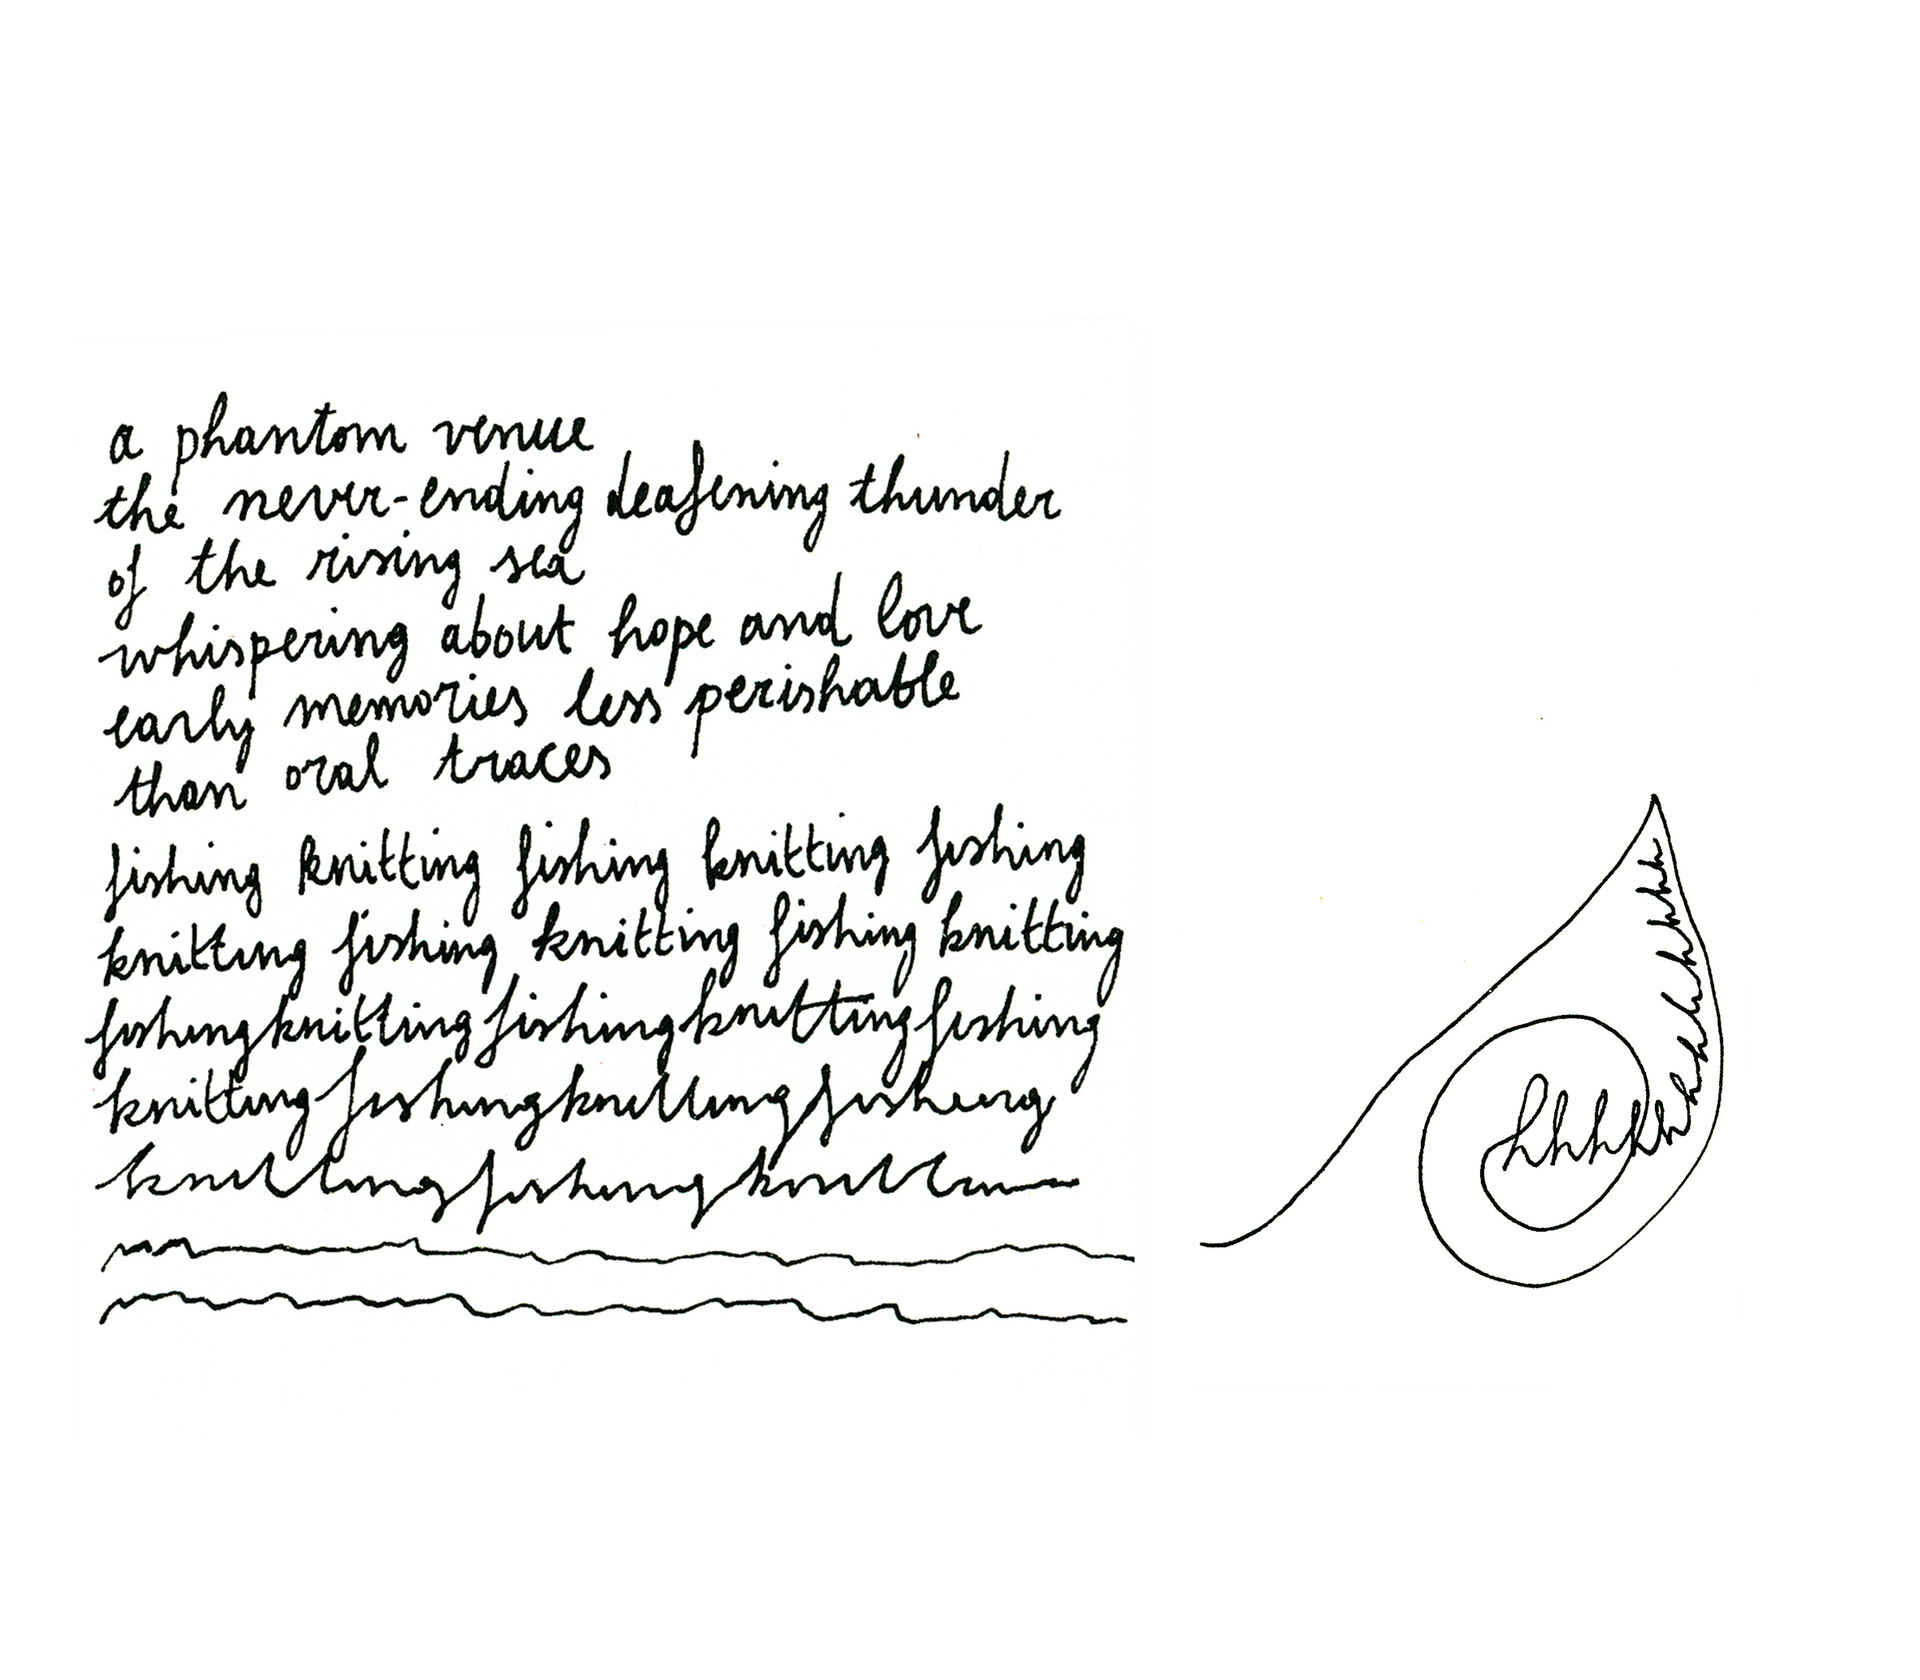 a phantom venue
the never-ending deafening thunder
of the rising sea
whispering about hope and love
early memories less perishable
than oral traces
fishing knitting fishing knitting fishing
knitting fishing knitting fishing knitting
fishingknittingfishingknittingfishing
knittingfishingknittingfishing
knittingfishingknitt
hhhhhhhhhhhhhh